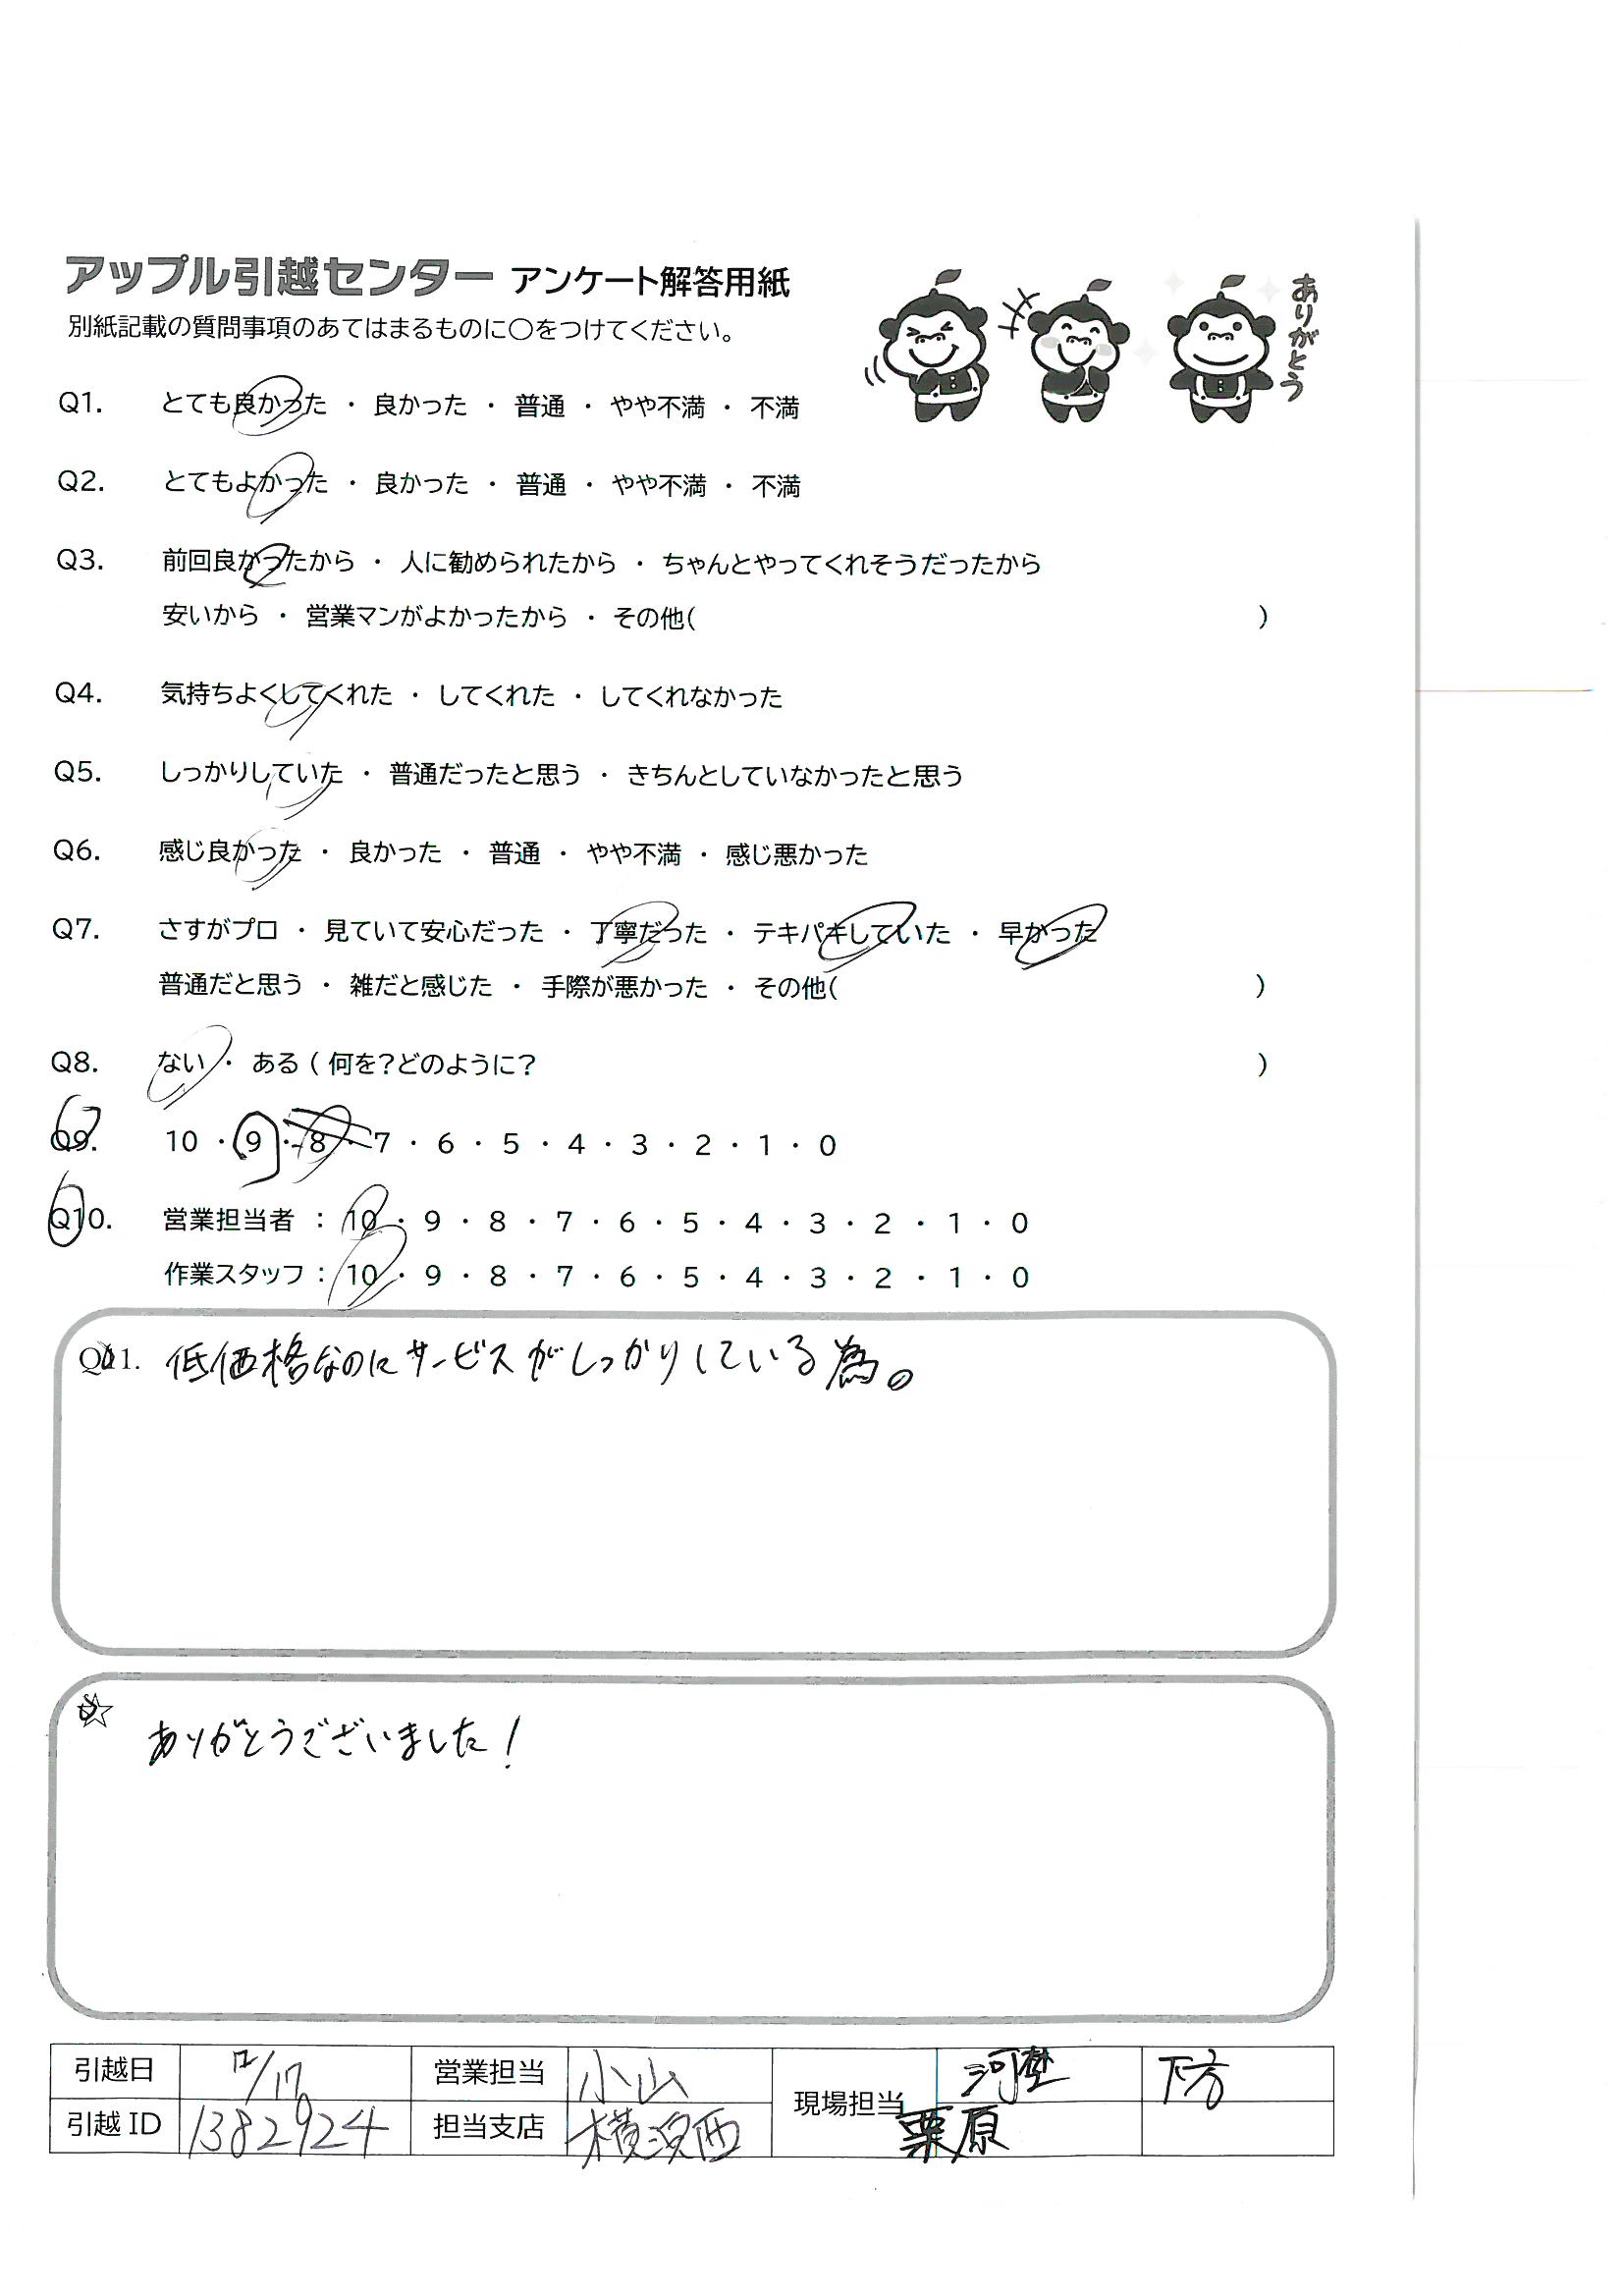 アップル引越センター アンケート解答用紙
別紙記載の質問事項のあてはまるものに○をつけてください。
ありがとう
Q1. とても良かった ・ 良かった ・ 普通 ・ やや不満 ・ 不満
Q2. とてもよかった ・ 良かった ・ 普通 ・ やや不満 ・ 不満
Q3. 前回良かったから ・ 人に勧められたから ・ ちゃんとやってくれそうだったから
安いから ・ 営業マンがよかったから ・ その他( )
Q4. 気持ちよくしてくれた ・ してくれた ・ してくれなかった
Q5. しっかりしていた ・ 普通だったと思う ・ きちんとしていなかったと思う
Q6. 感じ良かった ・ 良かった ・ 普通 ・ やや不満 ・ 感じ悪かった
Q7. さすがプロ ・ 見ていて安心だった ・ 丁寧だった ・ テキパキしていた ・ 早かった
普通だと思う ・ 雑だと感じた ・ 手際が悪かった ・ その他( )
Q8. ない ・ ある ( 何を?どのように? )
Q9. 10 ・ 9 ・ 8 ・ 7 ・ 6 ・ 5 ・ 4 ・ 3 ・ 2 ・ 1 ・ 0
Q10. 営業担当者 : 10 ・ 9 ・ 8 ・ 7 ・ 6 ・ 5 ・ 4 ・ 3 ・ 2 ・ 1 ・ 0
作業スタッフ : 10 ・ 9 ・ 8 ・ 7 ・ 6 ・ 5 ・ 4 ・ 3 ・ 2 ・ 1 ・ 0
Q11. 低価格なのにサービスがしっかりしている為。
☆ ありがとうございました!
引越日 12/17 営業担当 小山 現場担当 河埜 下方
引越ID 1382924 担当支店 横浜西 栗原